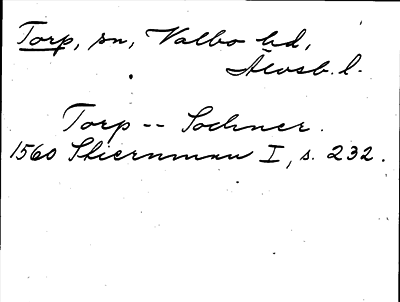 Torp, sn, Valbo hd,
Älvsb. l.
Torp -- Sochner.
1560 Stiernman I, s. 232.